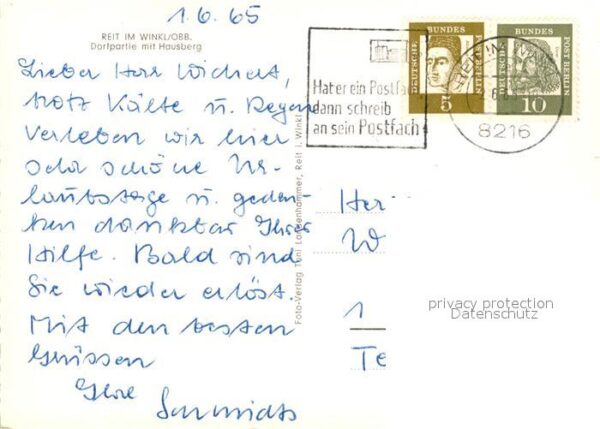 1.6.65
REIT IM WINKL/OBB.
Dorfpartie mit Hausberg
Lieber Herr Wichert,
trotz Kälte u. Regen
verleben wir hier
sehr schöne Ur-
laubstage u. geden-
ken dankbar Ihrer
Hilfe. Bald sind
Sie wieder erlöst.
Mit den besten
Grüssen
Ihre
Schmidts
Foto-Verlag Toni Lackenhammer, Reit i. Winkl
Hat er ein Postfach
dann schreib
an sein Postfach
DEUTSCHE
BUNDES
POST BERLIN
5
DEUTSCHE
BUNDES
POST BERLIN
10
8216
Her
W
1
Te
privacy protection
Datenschutz